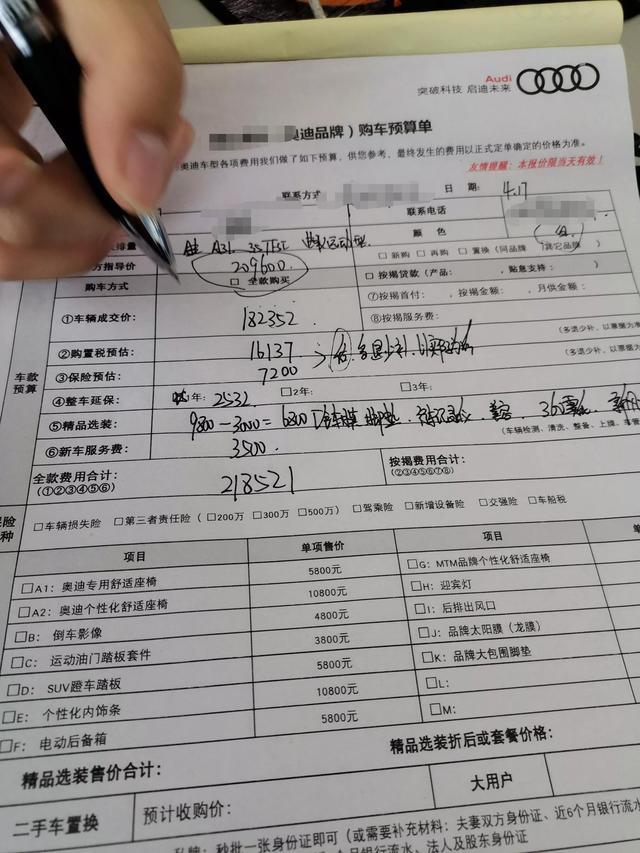 Audi
突破科技 启迪未来
奥迪品牌）购车预算单
奥迪车型各项费用我们做了如下预算，供您参考，最终发生的费用以正式定单确定的价格为准。
友情提醒：本报价限当天有效！
联系方式 日 期： 4.17
联系电话
排量 A3L 35TFSI 运动型 颜 色
方指导价 209600 □ 新购 □ 再购 □ 置换（同品牌 其它品牌）
购车方式 □ 全款购买 □ 按揭贷款（产品： ，贴息支持： ）
①车辆成交价： 182352 ⑦按揭首付： ，按揭金额： ，月供金额：
⑧按揭服务费：
②购置税预估： 16137 多退少补 （多退少补，以票据为准）
③保险预估： 7200 （多退少补，以票据为
车款预算
④整车延保： 1年： 2532 □2年： □3年：
⑤精品选装： 9800-3000=6800 脚垫 360
⑥新车服务费： 3500 （车辆检测、清洗、整备、上牌、车管
全款费用合计： 218521 按揭费用合计：
（①②③④⑤⑥） （②③④⑤⑥⑦⑧）
□车辆损失险 □第三者责任险（□200万 □300万 □500万） □驾乘险 □新增设备险 □交强险 □车船税
项目 单项售价 项目
□A1：奥迪专用舒适座椅 5800元 □G：MTM品牌个性化舒适座椅
□A2：奥迪个性化舒适座椅 10800元 □H：迎宾灯
□B：倒车影像 4800元 □I：后排出风口
□C：运动油门踏板套件 3800元 □J：品牌太阳膜（龙膜）
□D：SUV蹬车踏板 5800元 □K：品牌大包围脚垫
□E：个性化内饰条 10800元 □L：
□F：电动后备箱 5800元 □M：
精品选装售价合计： 精品选装折后或套餐价格：
二手车置换 预计收购价： 大用户
私牌：秒批一张身份证即可（或需要补充材料：夫妻双方身份证、近6个月银行流水
个月银行流水、法人及股东身份证